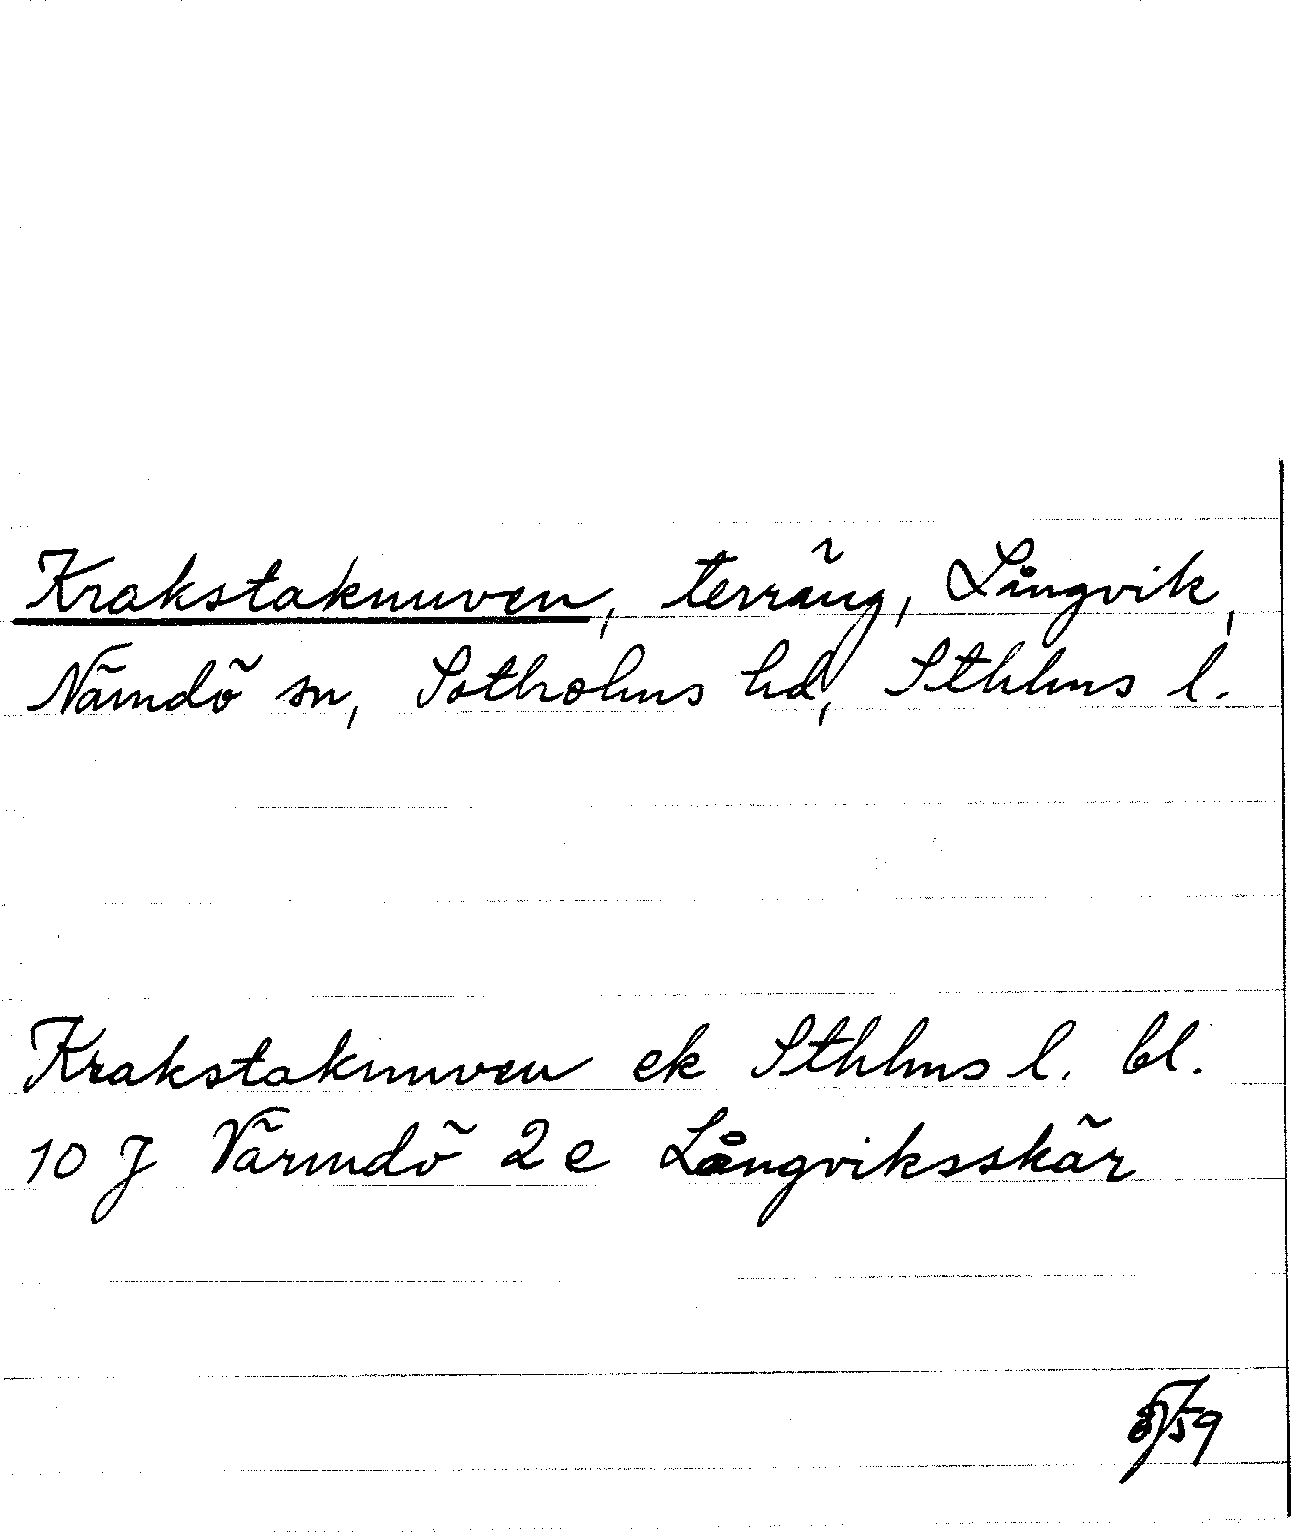 Krakstaknuven, terräng, Långvik,
Nämdö sn, Sotholms hd, Sthlms l.
Krakstaknuven ek Sthlms l. bl.
10 J Värmdö 2 e Långviksskär